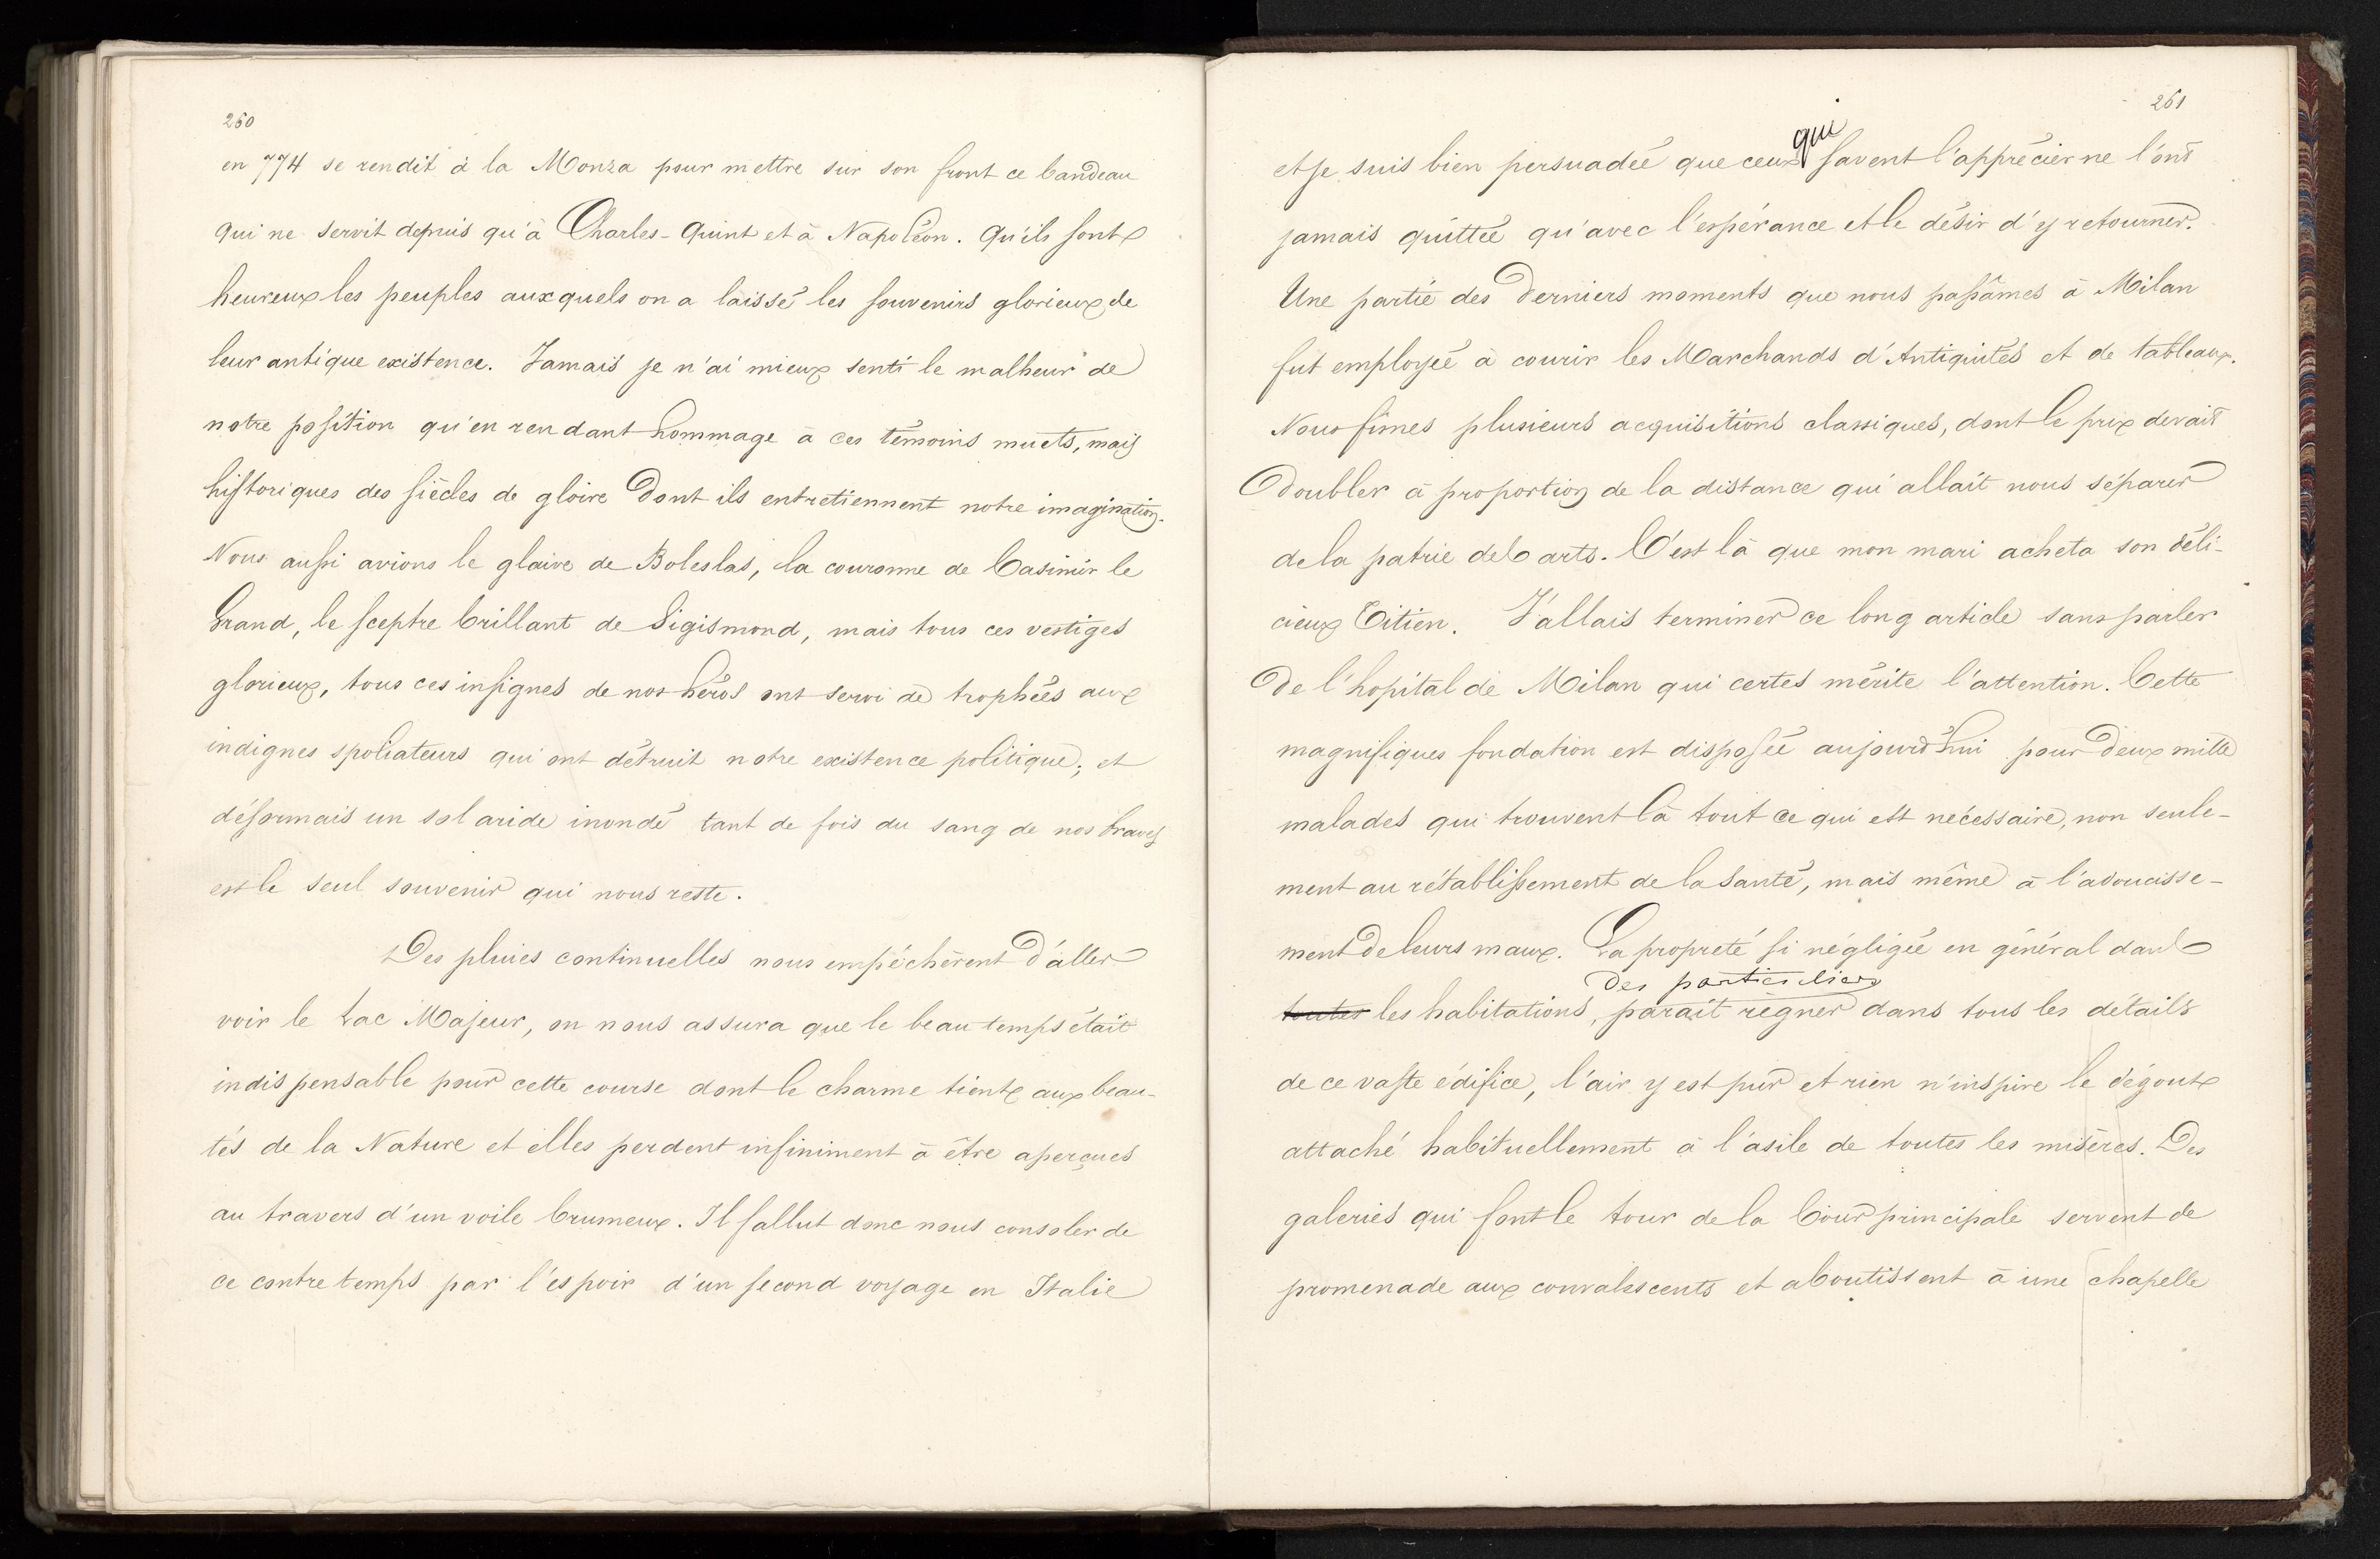 260
en 774 se rendit à la Monza pour mettre sur son front ce bandeau
qui ne servit depuis qu'à Charles-Quint et à Napoléon. Qu'ils sont
heureux les peuples auxquels on a laissé les souvenirs glorieux de
leur antique existence. Jamais je n'ai mieux senti le malheur de
notre position qu'en rendant hommage à ces témoins muets, mais
historiques des siècles de gloire dont ils entretiennent notre imagination.
Nous aussi avions le glaive de Boleslas, la couronne de Casimir le
Grand, le sceptre brillant de Sigismond, mais tous ces vestiges
glorieux, tous ces insignes de nos héros ont servi de trophées aux
indignes spoliateurs qui ont détruit notre existence politique; et
désormais un sol aride inondé tant de fois du sang de nos braves
est le seul souvenir qui nous reste.
Des pluies continuelles nous empêchèrent d'aller
voir le Lac Majeur, on nous assura que le beau temps était
indispensable pour cette course dont le charme tient aux beau-
tés de la Nature et elles perdent infiniment à être aperçues
au travers d'un voile brumeux. Il fallut donc nous consoler de
ce contretemps par l'espoir d'un second voyage en Italie
261
et je suis bien persuadée que ceux qui savent l'apprécier ne l'ont
jamais quittée qu'avec l'espérance et le désir d'y retourner.
Une partie des derniers moments que nous passâmes à Milan
fut employée à courir les Marchands d'Antiquités et de tableaux.
Nous fîmes plusieurs acquisitions classiques, dont le prix devait
doubler à proportion de la distance qui allait nous séparer
de la patrie des arts. C'est là que mon mari acheta son déli-
cieux Titien. J'allais terminer ce long article sans parler
de l'hopital de Milan qui certes mérite l'attention. Cette
magnifiques fondation est disposée aujourd'hui pour deux mille
malades qui trouvent là tout ce qui est nécessaire, non seule-
ment au rétablissement de la santé, mais même à l'adoucisse-
ment de leurs maux. La propreté si négligée en général dans
des particuliers
toutes les habitations, paraît régner dans tous les détails
de ce vaste édifice, l'air y est pur et rien n'inspire le dégout
attaché habituellement à l'asile de toutes les misères. Des
galeries qui font le tour de la Cour principale servent de
promenade aux convalescents et aboutissent à une chapelle